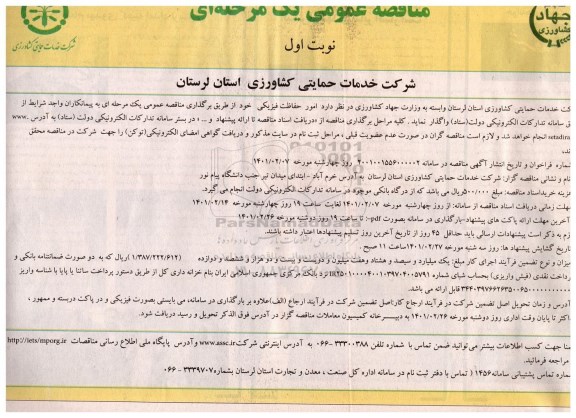 مناقصه عمومی یک مرحله‌ای
جهاد کشاورزی
شرکت خدمات حمایتی کشاورزی
نوبت اول
شرکت خدمات حمایتی کشاورزی استان لرستان
خدمات حمایتی کشاورزی استان لرستان وابسته به وزارت جهاد کشاورزی در نظر دارد امور حفاظت فیزیکی خود از طریق برگذاری مناقصه عمومی یک مرحله ای به پیمانکاران واجد شرایط از
سامانه تدارکات الکترونیکی دولت(ستاد) واگذار نماید . کلیه مراحل برگذاری مناقصه از دریافت اسناد مناقصه تا ارائه پیشنهاد و ... ، در بستر سامانه تدارکات الکترونیکی دولت (ستاد) به آدرس www.
setadira انجام خواهد شد و لازم است مناقصه گران در صورت عدم عضویت قبلی ، مراحل ثبت نام در سایت مذکور و دریافت گواهی امضای الکترونیکی(توکن) را جهت شرکت در مناقصه محقق
فراخوان و تاریخ انتشار آگهی مناقصه در سامانه ۲۰۰۱۰۰۱۵۵۶۰۰۰۰۰۲ روز چهارشنبه مورخه ۱۴۰۱/۰۲/۰۷
نام و نشانی مناقصه گزار: شرکت خدمات حمایتی کشاورزی استان لرستان به آدرس خرم آباد - ابتدای میدان تیر جنب دانشگاه پیام نور
خرید اسناد مناقصه: مبلغ ۵۰۰/۰۰۰ریال می باشد که از درگاه بانکی موجود در سامانه تدارکات الکترونیکی دولت انجام می گیرد.
مهلت زمانی دریافت اسناد مناقصه از سامانه: از روز چهارشنبه مورخه ۱۴۰۱/۰۲/۰۷ لغایت ساعت ۱۹ روز چهارشنبه مورخه ۱۴۰۱/۰۲/۱۴
آخرین مهلت ارائه پاکت های پیشنهاد-بارگذاری در سامانه بصورت pdf-: تا ساعت ۱۹ روز دوشنبه مورخه ۱۴۰۱/۰۲/۲۶
لازم به ذکر است پیشنهادات ارسالی باید حداقل ۴۵ روز از تاریخ آخرین روز تسلیم پیشنهادها اعتبار داشته باشند.
تاریخ گشایش پیشنهاد ها: روز سه شنبه مورخه ۱۴۰۱/۰۲/۲۷ساعت ۱۱ صبح.
میزان و نوع تضمین فرآیند اجرای کار مبلغ: یک میلیارد و سیصد و هشتاد وهفت میلیون و دویست و بیست و دو هزار و ششصد و دوازده (۱/۳۸۷/۲۲۲/۶۱۲) اریال که به دو صورت ضمانتنامه بانکی و
پرداخت نقدی (فیش واریزی) بحساب شبای شماره نزد بانک مرکزی جمهوری اسلامی ایران بنام خزانه داری کل از طریق دستور پرداخت ساتنا یا پایا با شناسه واریز
قابل ارائه می باشد.
آدرس و زمان تحویل اصل تضمین شرکت در فرآیند ارجاع کار:اصل تضمین شرکت در فرآیند ارجاع (الف)علاوه بر بارگذاری در سامانه، می بایستی بصورت فیزیکی و در پاکت دربسته و ممهور ،
حداکثر تا پایان وقت اداری روز دوشنبه مورخه ۱۴۰۱/۰۲/۲۶ به دبیرخانه کمیسیون معاملات مناقصه گزار در آدرس فوق الذکر تحویل و رسید دریافت شود.
جهت کسب اطلاعات بیشتر می توانید ضمن تماس با شماره تلفن ۳۳۳۰۰۳۸۸-۰۶۶ به آدرس اینترنتی شرکتwww.assc.ir وآدرس پایگاه ملی اطلاع رسانی مناقصات http://iets/mporg.ir
مراجعه فرمائید.
شماره تماس پشتیبانی سامانه۱۴۵۶ ( تماس با دفتر ثبت نام در سامانه اداره کل صنعت ، معدن و تجارت استان لرستان بشماره۳۳۳۹۷۰۷-۰۶۶
ParsNamadData